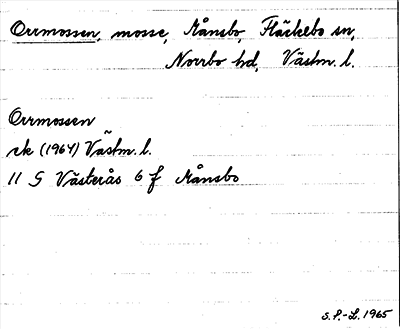 Orrmossen, mosse, Månsbo, Fläckebo sn,
Norrbo hd, Västm. l.
Orrmossen
ek (1964) Västm. l.
11 G Västerås 6 f Månsbo
S.P.-L. 1965